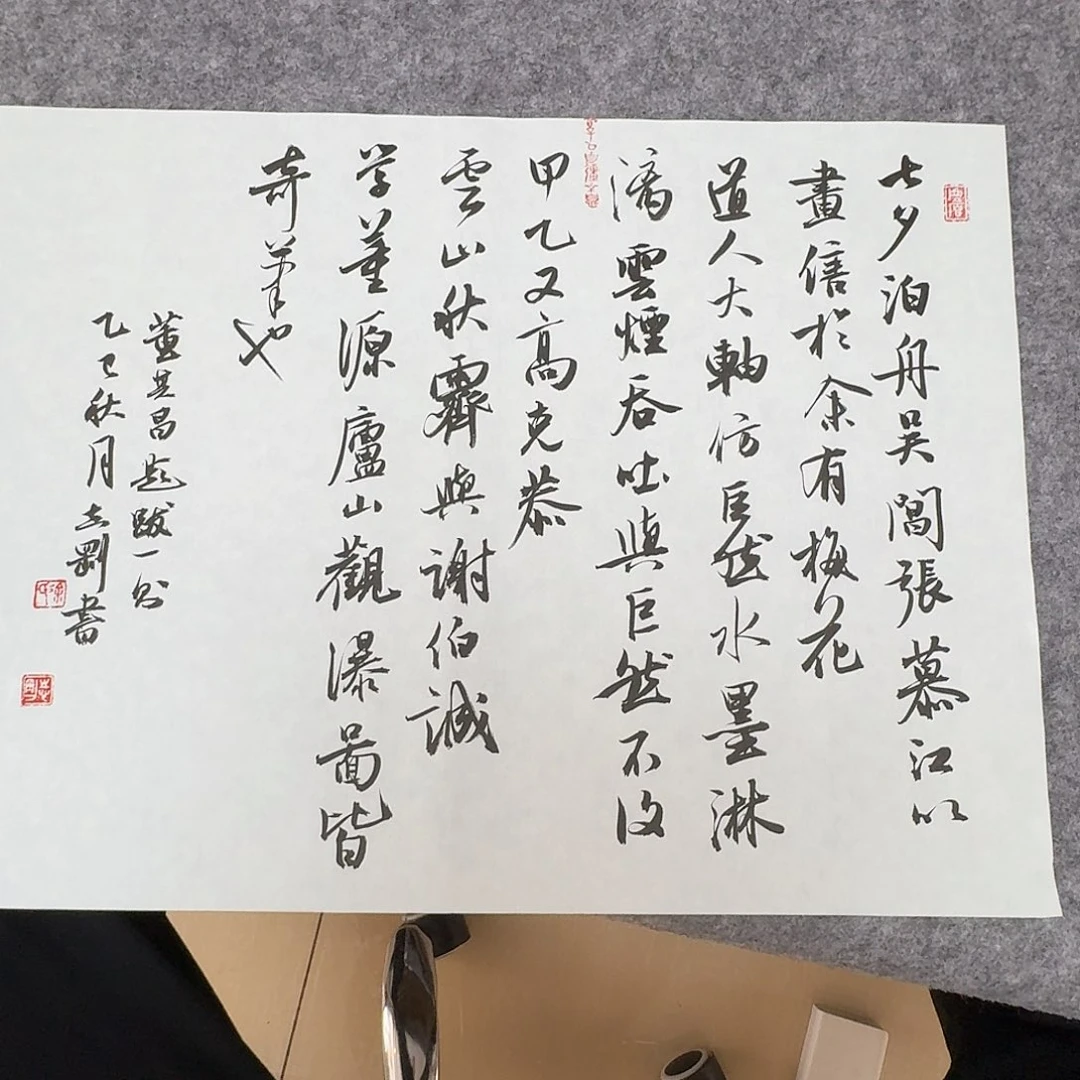 七夕泊舟吴閶張慕江以
畫售於余有梅花
道人大軸仿巨然水墨淋
漓雲煙吞吐與巨然不復
甲乙又高克恭
雲山秋霽與謝伯誠
学董源廬山觀瀑圖皆
奇筆也
董其昌題跋一則
乙巳秋月志剛書